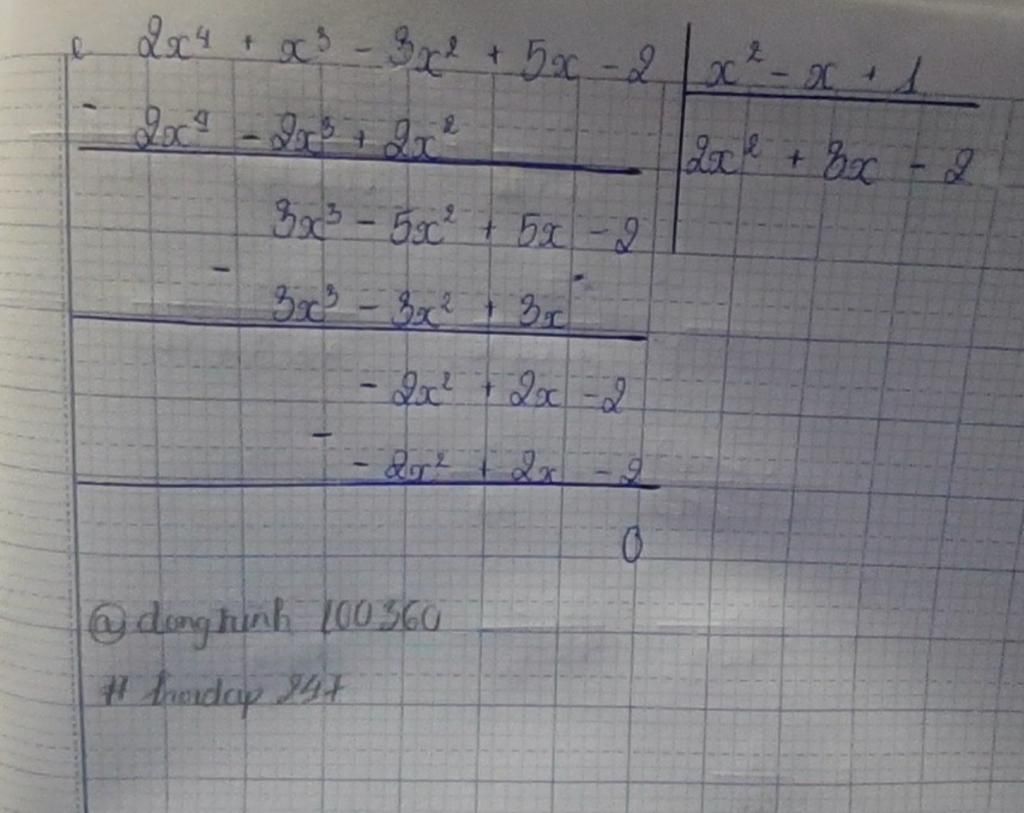 e 2x⁴ + x³ - 3x² + 5x - 2 | x² - x + 1
- 2x⁴ - 2x³ + 2x² | 2x² + 3x - 2
3x³ - 5x² + 5x - 2
- 3x³ - 3x² + 3x
- 2x² + 2x - 2
- - 2x² + 2x - 2
0
100360
247